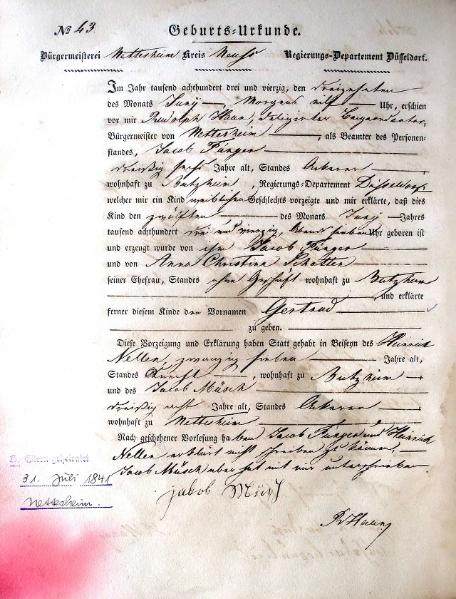 No 43 Geburts-Urkunde.
Bürgermeisterei Nettesheim Kreis Neuss Regierungs-Departement Düsseldorf.
Im Jahr tausend achthundert drei und vierzig, den dreizehnten
des Monats Juny, Morgens Uhr, erschien
vor mir Rudolph Haas,
Bürgermeister von Nettesheim, als Beamter des Personen-
standes, Jacob
dreißig sechs Jahre alt, Standes Ackerer
wohnhaft zu Butzheim, Regierungs-Departement Düsseldorf
welcher mir ein Kind weiblichen Geschlechts vorzeigte und mir erklärte, daß dies
Kind den zwölften des Monats Juny Jahres
tausend achthundert drei und vierzig Abends sieben Uhr geboren ist
und erzeugt wurde von ihm Jacob
und von Anna Christina
seiner Ehefrau, Standes ohne Geschäft wohnhaft zu Butzheim
und erklärte
ferner diesem Kinde den Vornamen Gertrud
zu geben.
Diese Vorzeigung und Erklärung haben Statt gehabt in Beiseyn des Heinrich
Nellen, zwanzig sieben Jahre alt,
Standes Knecht, wohnhaft zu Butzheim
und des Jacob Müsch
dreißig acht Jahre alt, Standes Ackerer
wohnhaft zu Nettesheim
Nach geschehener Vorlesung haben Jacob und Heinrich
Nellen erklärt nicht schreiben zu können,
Jacob Müsch aber hat mit mir unterschrieben.
jakob Müsch
R Haas
31. Juli 1841
Nettesheim.